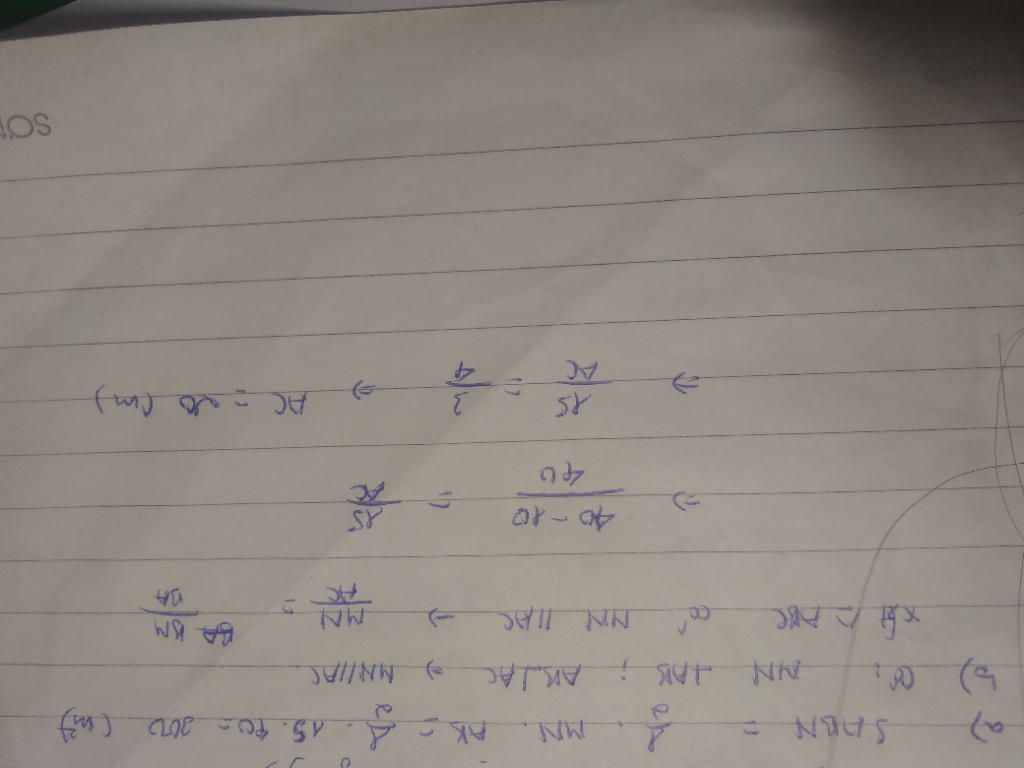 a) SABN = 1/2 . MN . AB = 1/2 . 15 . 40 = 300 (m²)
b) Có: MN ⊥ AB ; AB ⊥ AC ⇒ MN // AC
Xét △ABC có MN // AC → MN/AC = BN/BA
⇒ 40 - 10/40 = 15/AC
⇒ 15/AC = 3/4 ⇒ AC = 20 (m)